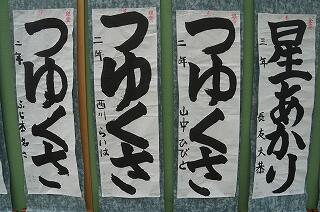 星あかり
三年
長友大恭
つゆくさ
二年
山中ひびと
つゆくさ
二年
西川らいは
つゆくさ
二年